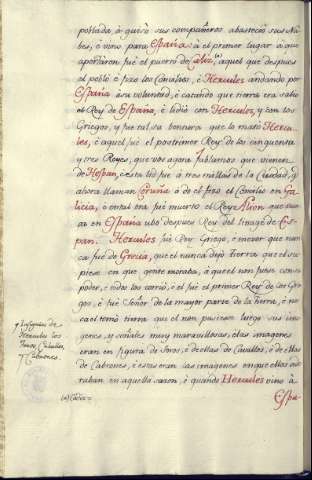 poblada, è guisò sus compañeros abasteció sus Na-
bes, è vino para España: à el primer lugar à que
aportaron fué el puerto de Caliz, (a) aquel que despues
el pobló è fizo los Concilios, è Hercules andando por
España à su voluntad, è catando que tierra era salio
el Rey de España, è lidió con Hercules, y con los
Griegos, y fue tal su bentura que lo mató Hercu-
les, è aquel fue el postrimer Rey de los cinquenta
y tres Reyes, que vos agora fablamos que vienen
de Hespan, è esta lid fue à tres millas de la Ciudad, q
ahora llaman Coruña à do el fizo el Concilio en Ga-
licia, è en tal ora fué muerto el Rey que
nunca en España ubo despues Rey del linage de Es-
pan. Hercules fué Rey Griego, è mejor que nun-
ca fué de Grecia, que el nunca dejó tierra que el su-
piese en que gente moraba, à que el non fuese con su
poder, è todos los corrió, è el fué el primer Rey de los Grie-
gos, è fue Señor de la mayor parte de la Tierra, è nun-
ca el tomó tierra que el non pusiesen luego sus ima-
genes, y señales muy maravillosas, è las imagenes
eran en figura de Toros, è de ellas de Cavallos, è de ellas
de Cabrones, è estas eran las imagenes en que ellos ado-
raban en aquella sazon, è quando Hercules vino à
Espa-
Insignias de
Hercules los
Toros, Caballos,
y Cabrones.
(a) Cadiz =